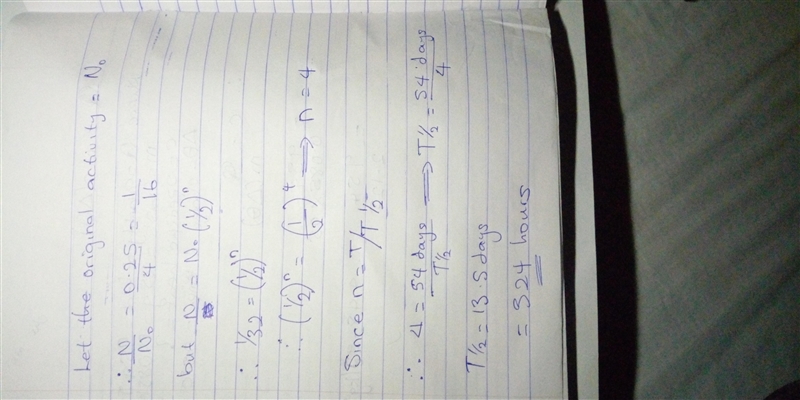 Let the original activity = N₀
∴ N/N₀ = 0.25/4 = 1/16
but N = N₀ (1/2)ⁿ
∴ 1/32 = (1/2)ⁿ
∴ (1/2)ⁿ = (1/2)⁴ ⟹ n = 4
Since n = T/T½
∴ 4 = 54 days/T½ ⟹ T½ = 54 days/4
T½ = 13.5 days
= 324 hours